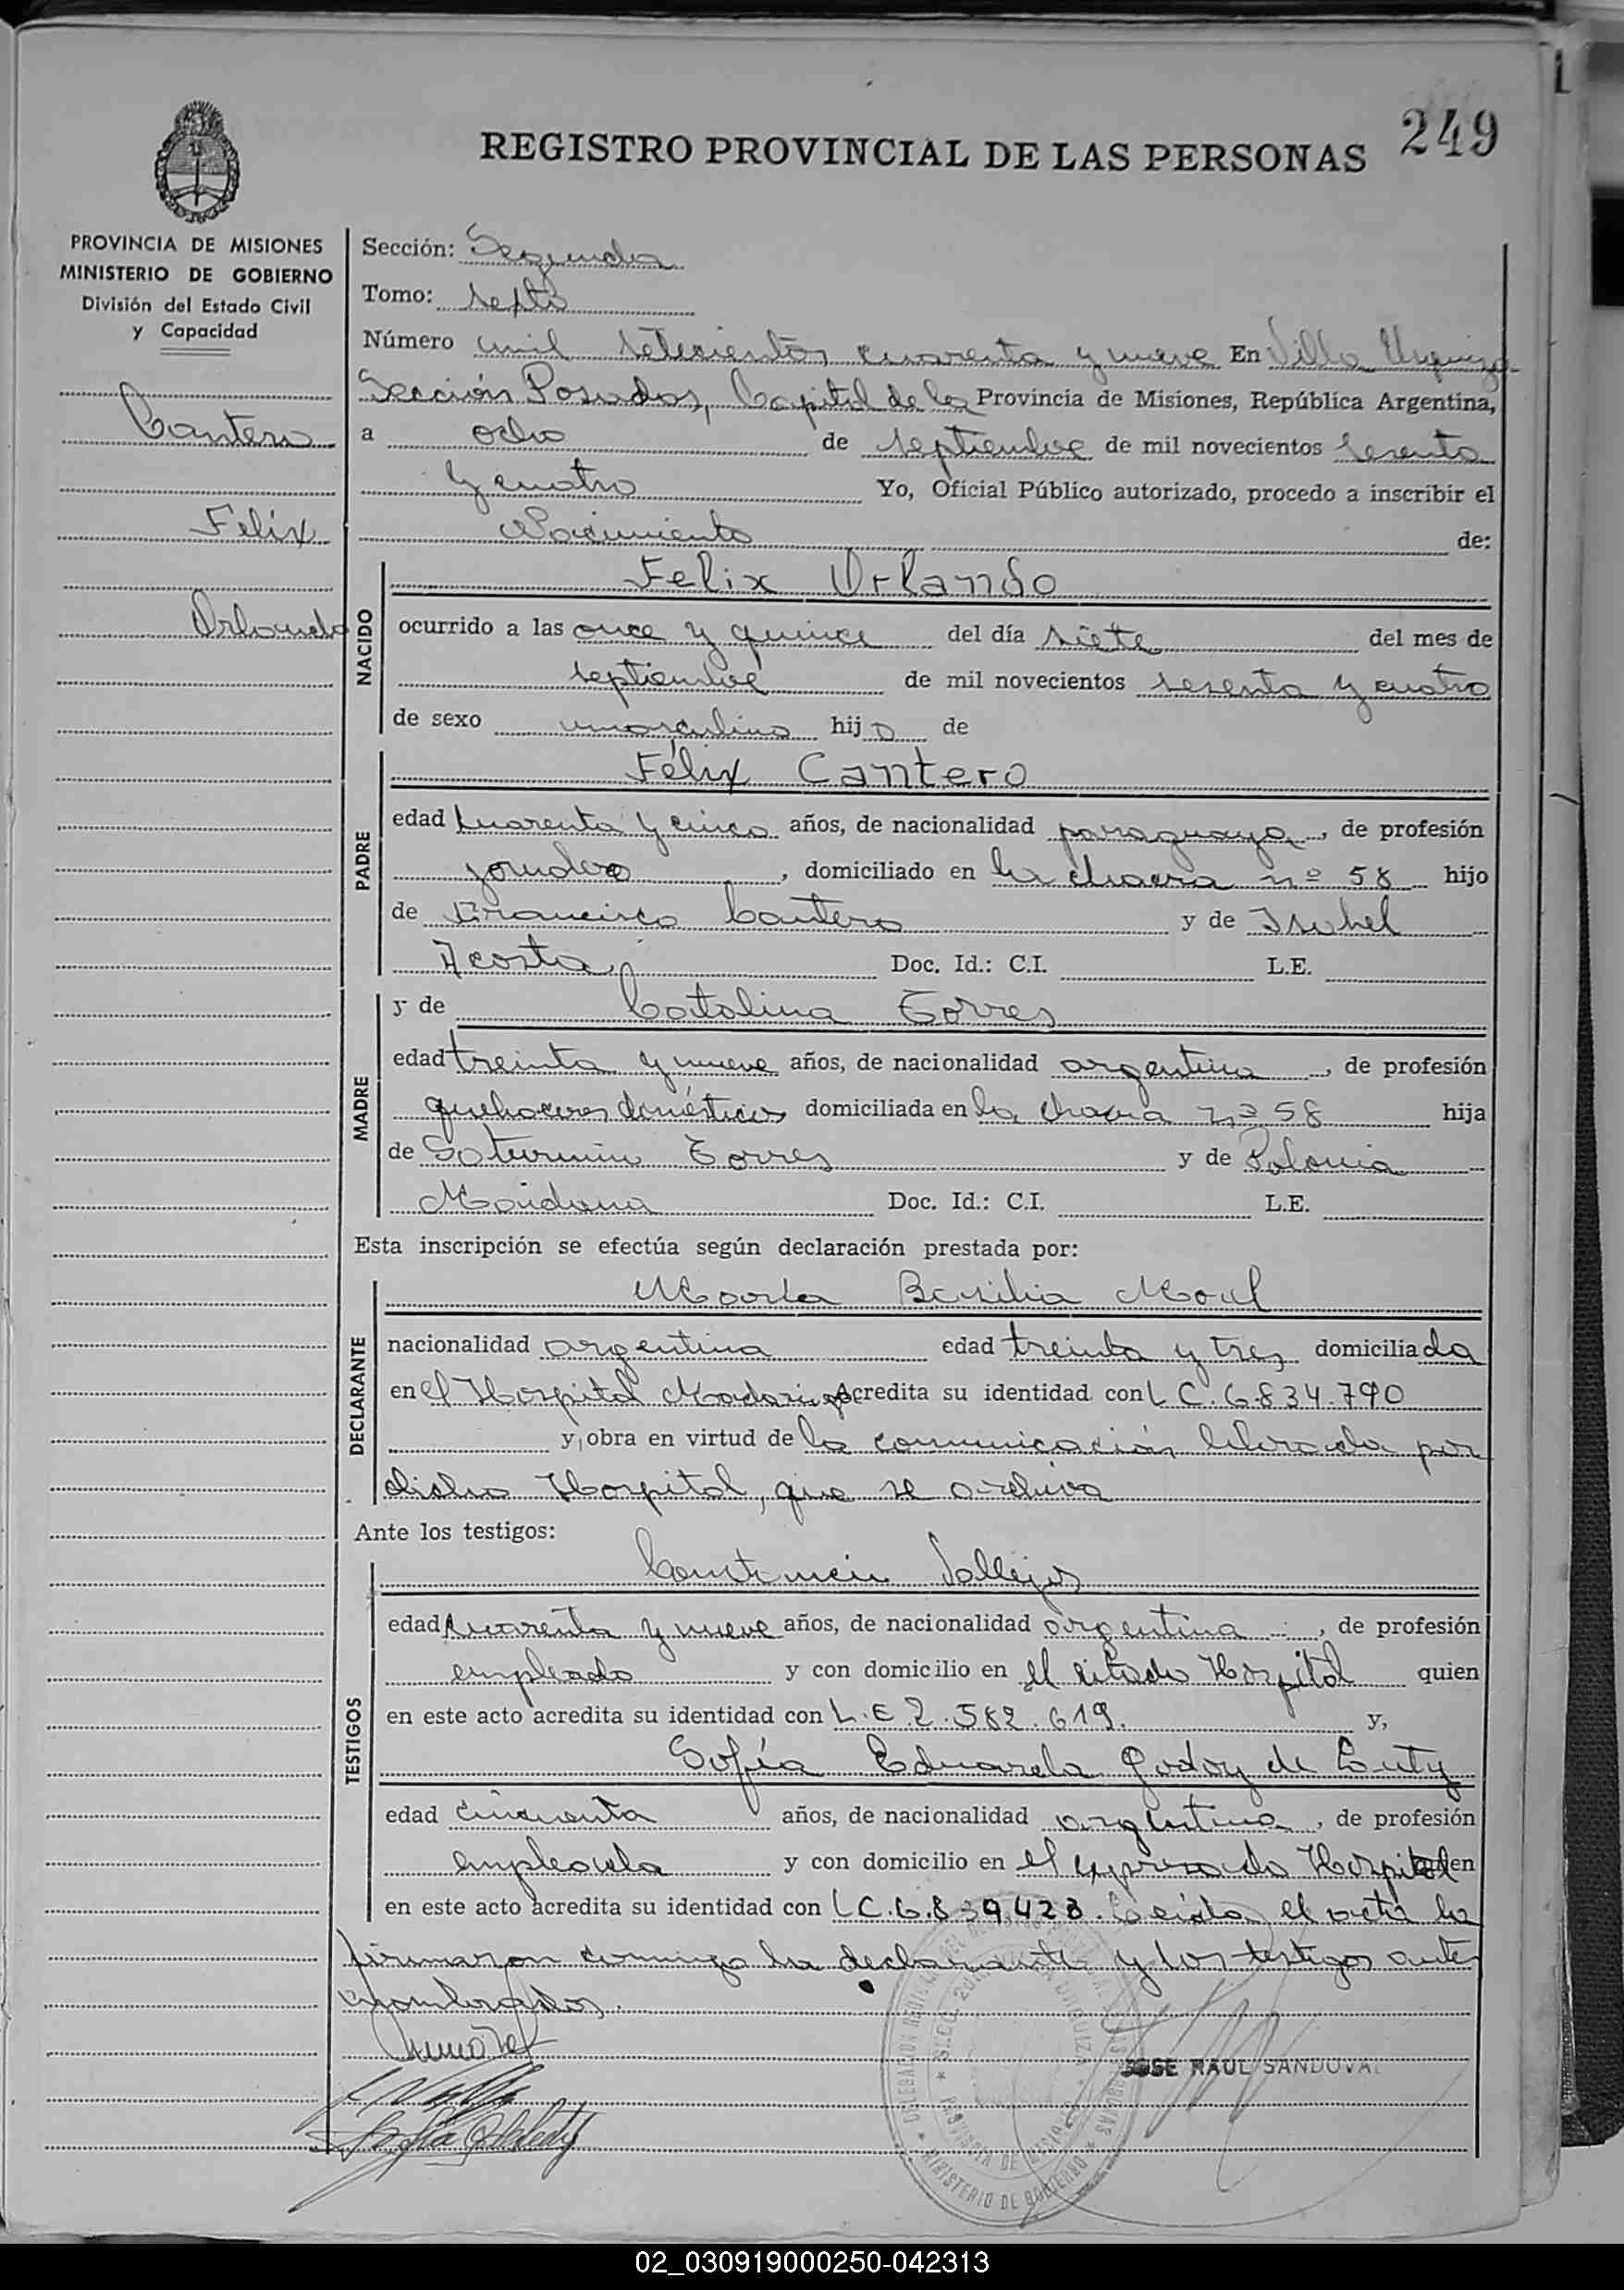 249
REGISTRO PROVINCIAL DE LAS PERSONAS
PROVINCIA DE MISIONES
MINISTERIO DE GOBIERNO
División del Estado Civil
y Capacidad
Cantero
Felix
Orlando
Sección: Segunda
Tomo: septo
Número mil setecientos cuarenta y nueve En Villa Urquiza
Sección Posadas, Capital de la Provincia de Misiones, República Argentina,
a ocho de septiembre de mil novecientos sesenta
y cuatro Yo, Oficial Público autorizado, procedo a inscribir el
Nacimiento de:
NACIDO
Felix Orlando
ocurrido a las once y quince del día siete del mes de
septiembre de mil novecientos sesenta y cuatro
de sexo masculino hijo de
PADRE
Félix Cantero
edad cuarenta y cinco años, de nacionalidad paraguaya, de profesión
jornalero, domiciliado en la chacra nº 58 hijo
de Francisco Cantero y de Isabel
Acosta, Doc. Id.: C.I. L.E.
MADRE
y de Catalina Torres
edad treinta y nueve años, de nacionalidad argentina, de profesión
quehaceres domésticos domiciliada en la chacra nº 58 hija
de Saturnino Torres y de Polonia
Maidana Doc. Id.: C.I. L.E.
Esta inscripción se efectúa según declaración prestada por:
DECLARANTE
Marta Basilia
nacionalidad argentina edad treinta y tres domiciliada
en el Hospital Madariaga Acredita su identidad con L C. 6.834.790
y, obra en virtud de la comunicación librada por
dicho Hospital, que se archiva
Ante los testigos:
TESTIGOS
Constancio Vallejos
edad cuarenta y nueve años, de nacionalidad argentina, de profesión
empleado y con domicilio en el citado Hospital quien
en este acto acredita su identidad con L.E 2.582.619. y,
Sofía Eduarda Godoy de
edad cincuenta años, de nacionalidad argentina, de profesión
empleada y con domicilio en el expresado Hospital quien
en este acto acredita su identidad con L C. 6.839.428. Leída el acta la
firmaron conmigo la declarante y los testigos antes
nombrados.
JOSE RAUL SANDOVAL
02_030919000250-042313